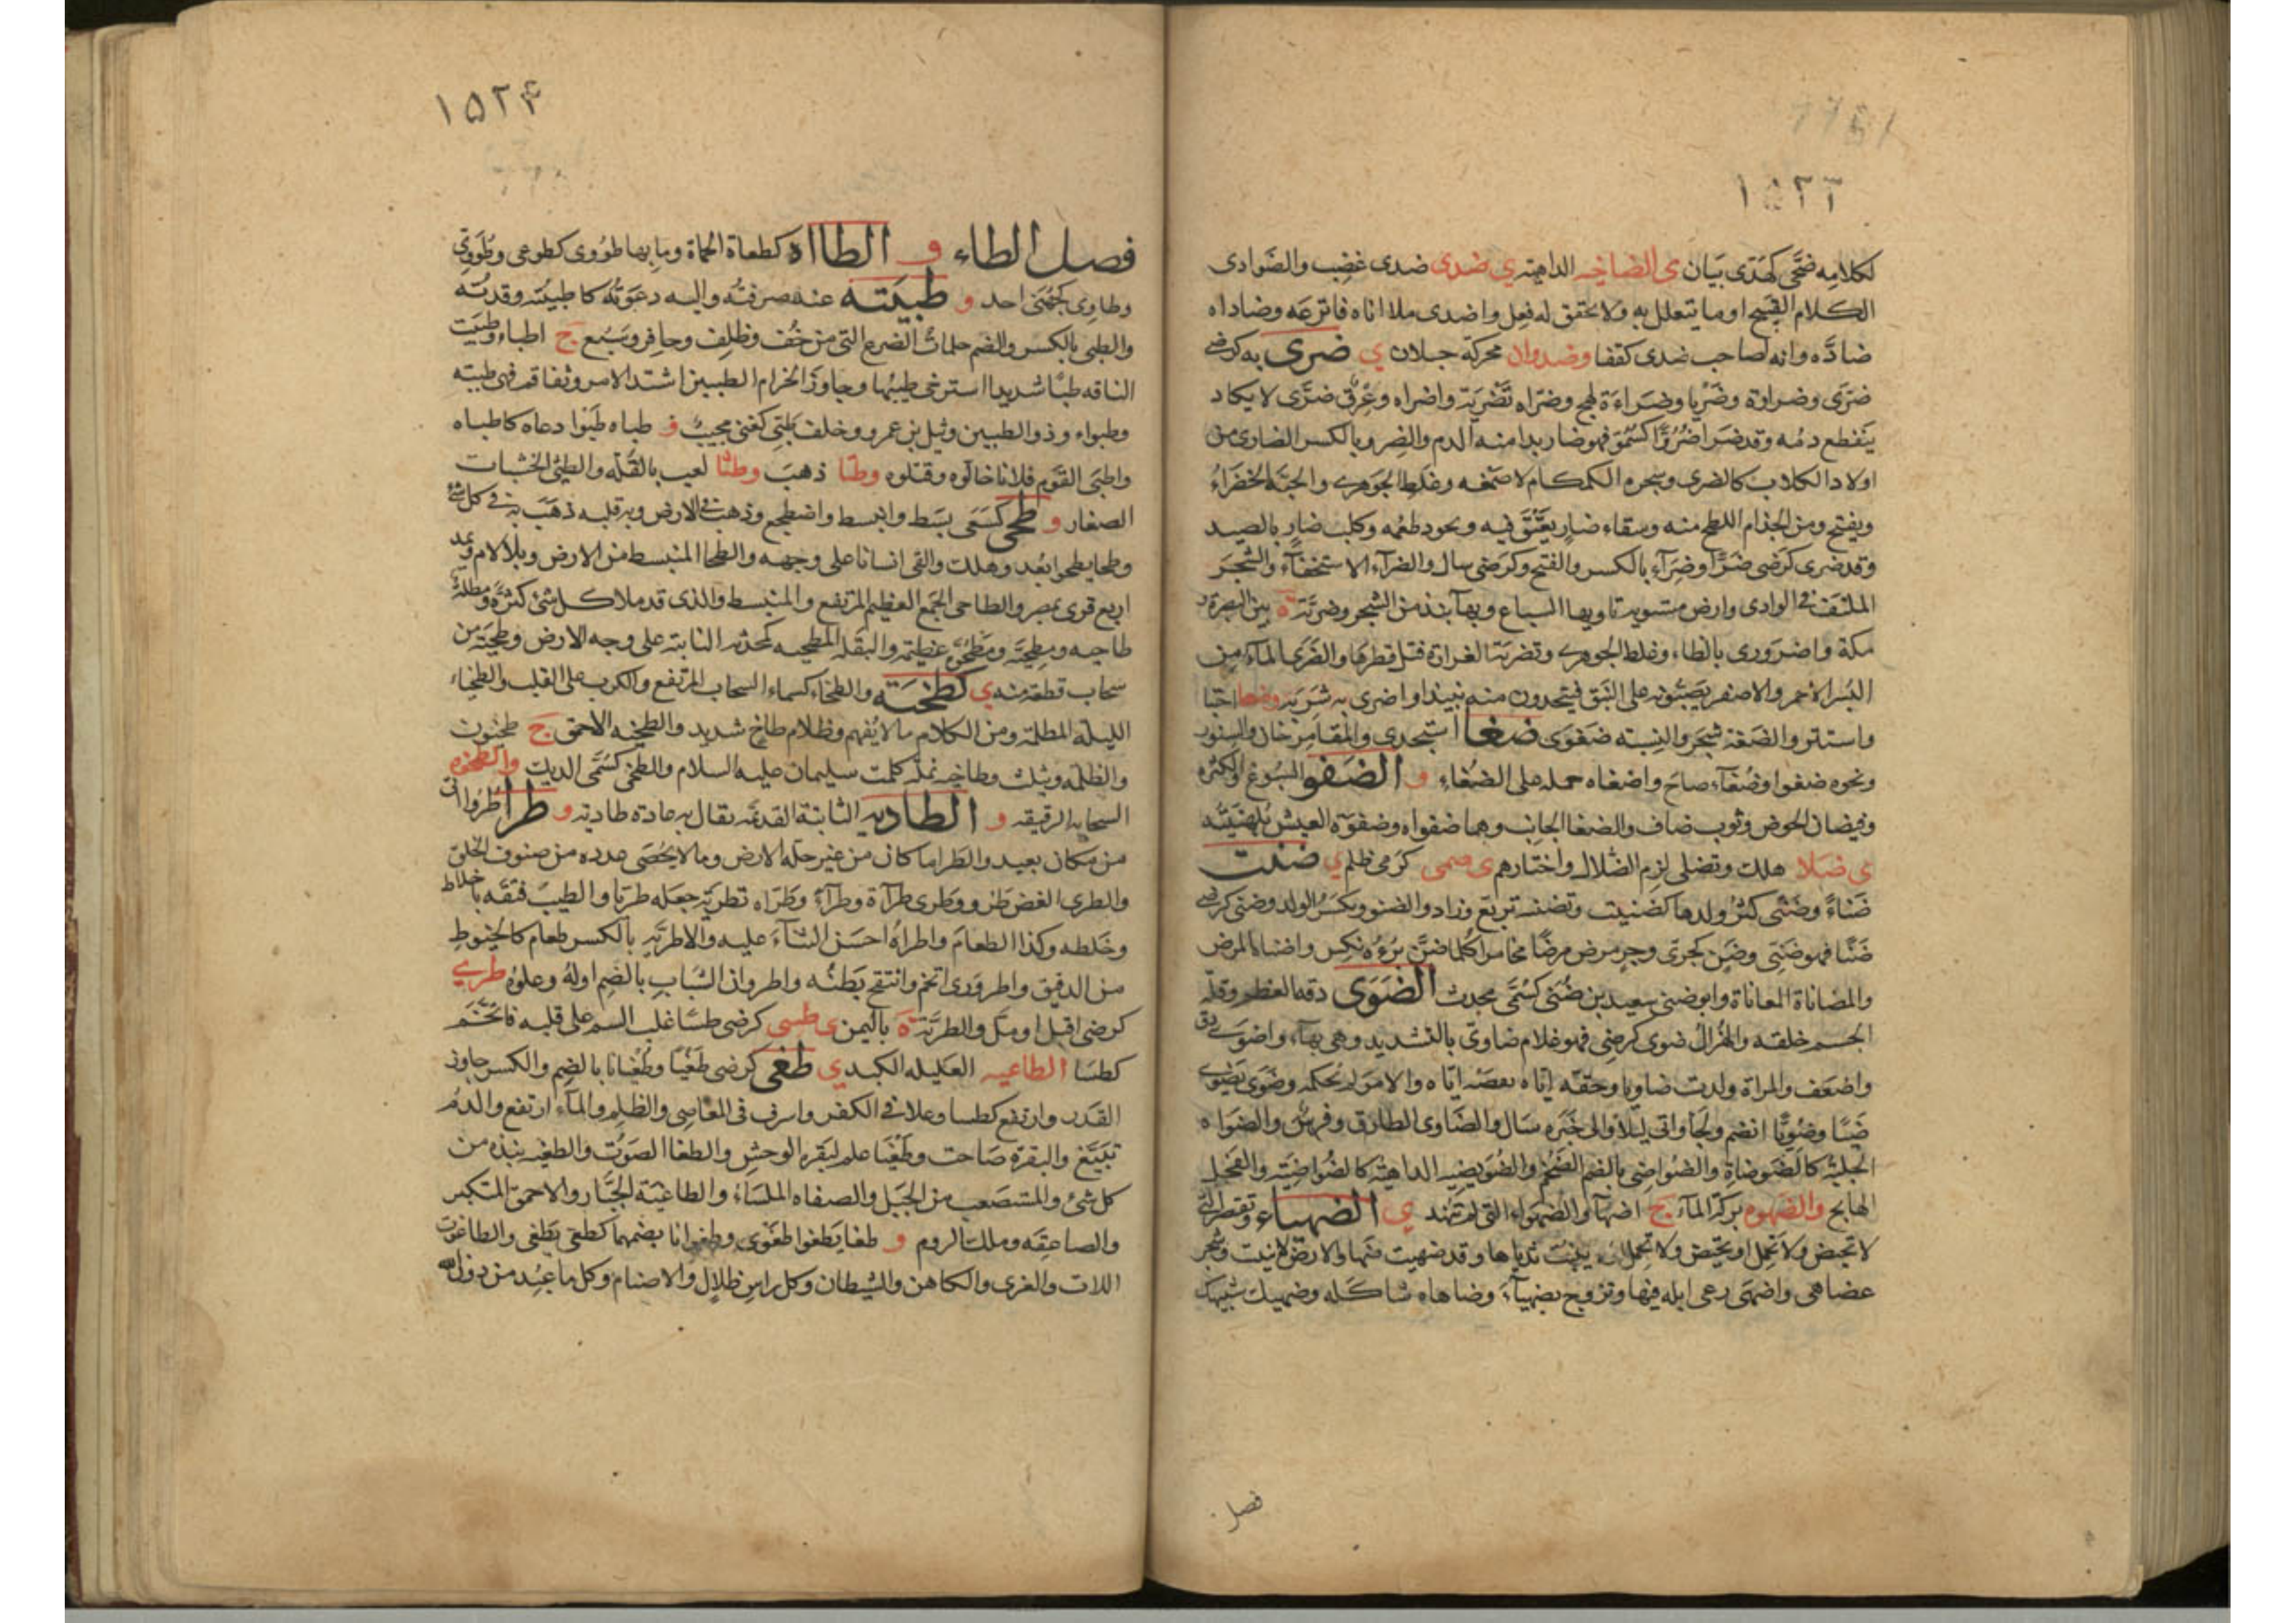 ١٥٢٢
لكلامه ضحى كهدى بيان ى الضاخيه الداهيته ي ضدى ضدى غضب والضوادى
الكلام القبيح او ما يتعلل به ولا يحقق له فعل واضدى ملا اناه فاترعه وضاداه
ضاده وانه لصاحب ضدى كقفا وضدوان محركة جبلان ي ضرى به كرضى
ضرى وضراوة وضريا وضراءة لهج وضراه تضرية واضراه وعرق ضرى لا يكاد
ينقطع دمه وقد ضرا ضروا كسمو فهو ضار بدا منه الدم والضرو بالكسر الضارى من
اولاد الكلاب كالضرى وشجره الكمكام لا صمغه وغلط الجوهرى والحبة الخضراء
ويفتح ومن الجذام اللطخ منه وسقاء ضار يعتق فيه ويجود طعمه وكلب ضار بالصيد
وقد ضرى كرضى ضرا وضراء بالكسر والفتح وكرضى سال والضراء الاستخفاء والشجر
الملتف فى الوادى وارض مستوية تاويها السباع وبها نبذ من الشجر وضرية ة بين البصرة و
مكة واضرورى بالطاء وغلط الجوهرى وتضرية الغرارة فتل قطرها والضرى الماء من
البسر الاحمر والاصفر يصبونه على النبق فيتخذون منه نبيذا واضرى به شربه اختبا
واستتر والضعة شجر والنسبة ضعوى ضغا استجدى والمقامر خان والسنور
ونحوه ضغوا وضغاء صاح واضغاه حمله على الضغاء و الضفو السبوغ والكثره
وفيضان الحوض وثوب ضاف والضفا الجانب وهما ضفواه وضفوة العيش بلهنيته
ى ضلا هلك وتضلى لزم الضلال واختارهم ى ضمى كرمى ظلم ي ضنت
ضناء وضنى كثر ولدها كضنيت وتضنى زاد والضنو ويكسر الولد وضنى كرضى
ضنا فهو ضنى وضن كحرى وحر مرض مرضا مخامرا كلما ظن برءه نكس واضناه المرض
والمضاناة المعاناة وابو ضنى سعيد بن ضنى كسمى محدث الضوى دقه العظم وقلة
الجسم خلقه والهزال ضوى كرضى فهو غلام ضاوى بالتشديد وهى بهاء واضوى دق
واضعف والمراة ولدت ضاويا وحقه اياه نقصه اياه والامر لم يحكمه وضوى يضوى
ضيا وضويا انضم ولجا واتى ليلا والى خبره سال والضاوى الطارق وفرس والضواه
الجلبة كالضوضاة والضواضى بالضم الضخم والضويضيه الداهية كالضواضية والفحل
الهايج والضهوه بركة الماء ج اضهاء والضهواء التى لم تنهد ي الضهياء وتقصر التى
لا تحيض ولا تحمل او تحيض ولا تحمل ثدياها وقد ضهيت ضها والارض لا تنبت وشجر
عضاهى واضهى رعى ابله فيها وتزوج بضهياء وضاهاه شاكله وضهيك شبيهك
فصل
١٥٢٣
فصل الطاء و الطااه كطعاة الحماة وما بها طووى كطوعى وطووى
وطاوى كجهنى احد و طبيته عنه صرفته واليه دعوته كاطبيته وقدته
والطبى بالكسر والضم حلمات الضرع التى من خف وظلف وحافر وسبع ج اطباء وطبيت
الناقه طبا شديدا استرخى طبيها وجاوز الحزام الطبيين اشتد الامر وتفاقم فهى طبية
وطبواء وذو الطبيين وثيل بن عمرو وخلف طبى كغنى مجيب و طباه طبوا دعاه كاطباه
واطبى القوم فلانا خالوه وقتلوه وطتا ذهب وطثا لعب بالقلة والطثى الخشبات
الصغار و طحى كسعى بسط وانبسط واضطجع وذهب فى الارض وبه قلبه ذهب به فى كل شئ
وطحا يطحوا بعد وهلك والقى انسانا على وجهه والطحا المنبسط من الارض وبلا لام ويمد
اربع قرى بمصر والطاحى الجمع العظيم المرتفع والمنبسط والذى قد ملا كل شئ كثرة ومظلة
طاحيه ومطحية ومطحوة عظيمه والبقلة المطحيه كمحدثه النابتة على وجه الارض وطحية من
سحاب قطعة منه ي كطخية والطخاء كسماء السحاب المرتفع والكرب على القلب والطخياء
الليلة المظلمة ومن الكلام ما لا يفهم وظلام طاخ شديد والطخيه الاحمق ج طخيون
والظلمه ويثلث وطاخيه نملة كلمت سليمان عليه السلام والطخى كسمى الديك والطخوه
السحابه الرقيقه و الطاديه الثابتة القديمة يقال به عادة طادية و طرا طروا اتى
من مكان بعيد والطرا ما كان من غير جبلة الارض وما لا يحصى عدده من صنوف الخلق
والطرى الغض طرو وطرى طراة وطراء وطراه تطرية جعله طريا والطيب فتقه باخلاط
وخلطه وكذا الطعام واطراه احسن الثناء عليه والاطرية بالكسر طعام كالخيوط
من الدقيق واطرورى اتخم وانتفخ بطنه واطروان الشباب بالضم اوله وعلوه طري
كرضى اقبل او مل والطرية ة باليمن ى طسى كرضى طسا غلب الدسم على قلبه فاتخم
كطسا الطاعيه العكيله الكبد ي طغى كرضى طغيا وطغيانا بالضم والكسر جاوز
القدر وارتفع كطسا وعلا فى الكفر واسرف فى المعاصى والظلم والماء ارتفع والدم
تبيغ والبقرة صاحت وطغيا علم لبقره الوحش والطغا الصوت والطغيه نبذه من
كل شئ والمستصعب من الجبل والصفاه الملساء والطاغية الجبار والاحمق المتكبر
والصاعقه وملك الروم و طغا يطغوا طغوى وطغوانا بضمهما كطغى يطغى والطاغوت
اللات والعزى والكاهن والشيطان وكل راس ظلال والاصنام وكل ما عبد من دون الله